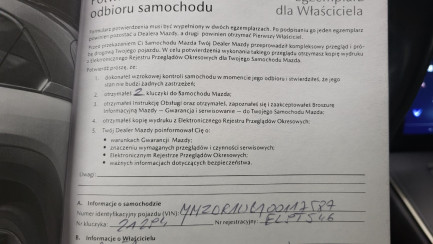 odbioru samochodu
dla Właściciela
Formularz potwierdzenia musi być wypełniony w dwóch egzemplarzach. Po podpisaniu go jeden egzemplarz
powinien pozostać u Dealera Mazdy, a drugi powinien otrzymać Pierwszy Właściciel.
Przed przekazaniem Ci Samochodu Mazda Twój Dealer Mazdy przeprowadził kompleksowy przegląd i pró-
bę drogową Twojego pojazdu. W celu potwierdzenia wykonania takiego przeglądu otrzymasz kopię wydruku
z Elektronicznego Rejestru Przeglądów Okresowych dla Twojego Samochodu Mazda.
Potwierdź proszę, że:
1. dokonałeś wzrokowej kontroli samochodu w momencie jego odbioru i stwierdziłeś, że jego
stan nie budzi żadnych zastrzeżeń;
2. otrzymałeś 2 kluczyki do Samochodu Mazda;
3. otrzymałeś Instrukcję Obsługi oraz otrzymałeś, zapoznałeś się i zaakceptowałeś Broszurę
Informacyjną Mazdy — Gwarancja i serwisowanie — do Twojego Samochodu Mazda;
4. otrzymałeś kopię wydruku z Elektronicznego Rejestru Przeglądów Okresowych;
5. Twój Dealer Mazdy poinformował Cię o:
• warunkach Gwarancji Mazdy;
• znaczeniu wymaganych przeglądów i czynności serwisowych;
• Elektronicznym Rejestrze Przeglądów Okresowych;
• ważnych informacjach dotyczących bezpieczeństwa.
Uwagi:
A. Informacje o samochodzie
Numer identyfikacyjny pojazdu (VIN):
Nr kluczyka: Nr rejestracyjny:
B. Informacje o Właścicielu